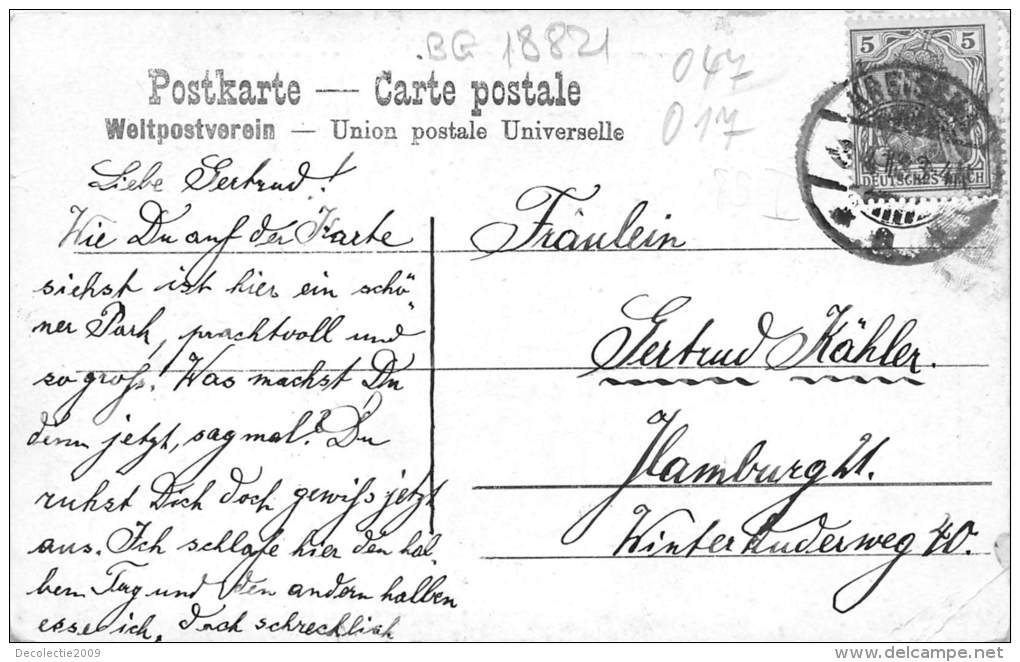 BG 18821
047
017
Postkarte — Carte postale
Weltpostverein — Union postale Universelle
5 5
DEUTSCHES REICH
Liebe Gertrud!
Wie Du auf der Karte
siehst ist hier ein schö-
ner Park, prachtvoll und
so groß! Was machst Du
denn jetzt, sag mal? Du
ruhst Dich doch gewiß jetzt
aus. Ich schlafe hier den hal
ben Tag und den andern halben
esse ich, doch schrecklich
Fräulein
Gertrud Kähler.
Hamburg 21.
Winterhuderweg 40.
Decolectie2009
delcampe.net